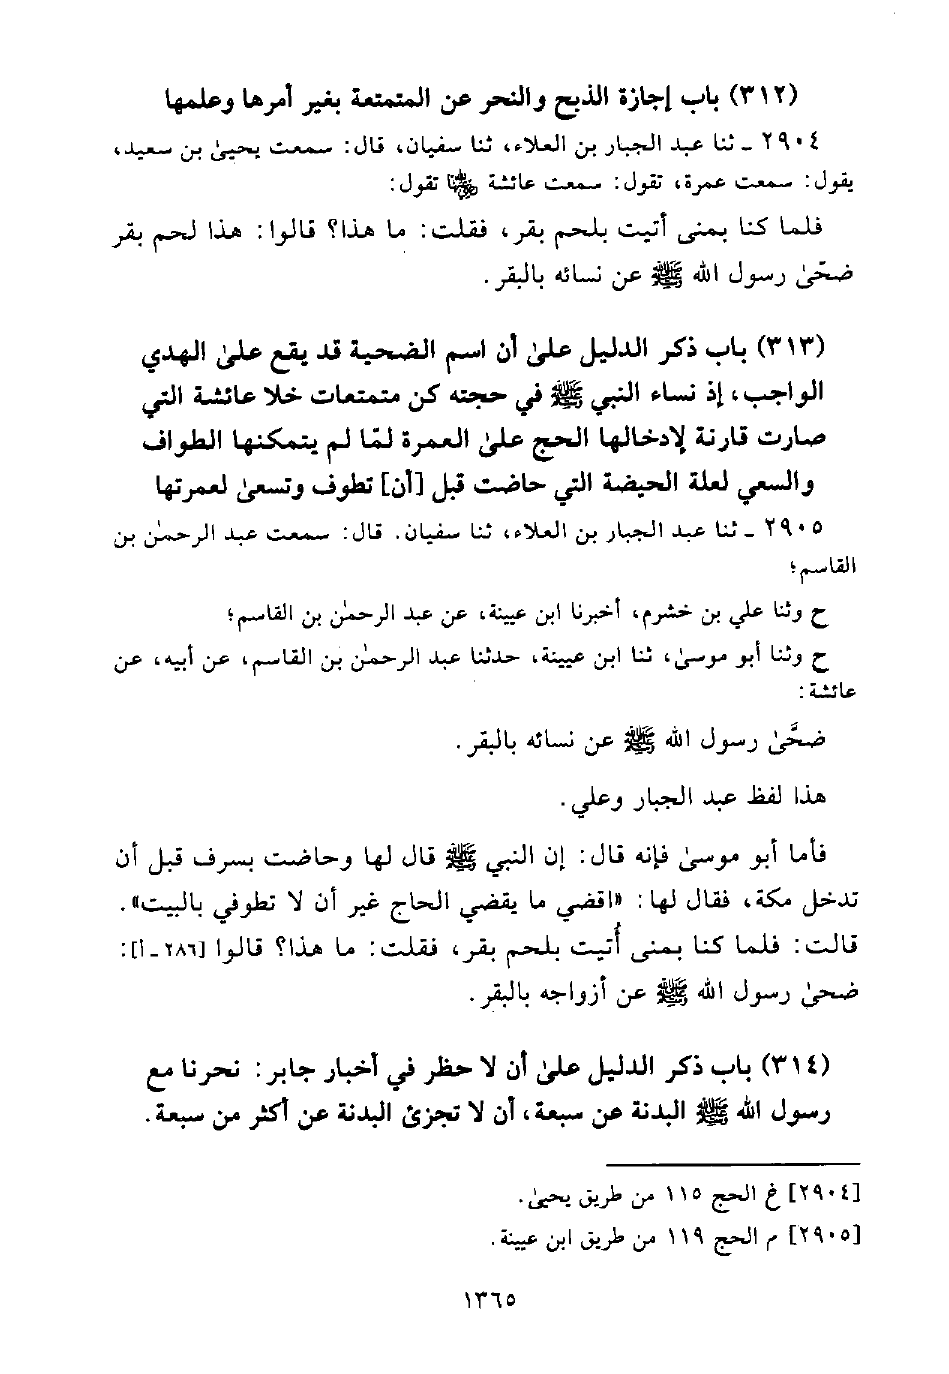 (٣١٢) باب إجازة الذبح والنحر عن المتمتعة بغير أمرها وعلمها
٢٩٠٤ ـ ثنا عبد الجبار بن العلاء، ثنا سفيان، قال: سمعت يحيىٰ بن سعيد،
يقول: سمعت عمرة، تقول: سمعت عائشة رضي الله عنها تقول:
فلما كنا بمنى أتيت بلحم بقر، فقلت: ما هذا؟ قالوا: هذا لحم بقر
ضحّىٰ رسول الله ﷺ عن نسائه بالبقر.
(٣١٣) باب ذكر الدليل علىٰ أن اسم الضحية قد يقع علىٰ الهدي
الواجب، إذ نساء النبي ﷺ في حجته كن متمتعات خلا عائشة التي
صارت قارنة لإدخالها الحج علىٰ العمرة لمّا لم يتمكنها الطواف
والسعي لعلة الحيضة التي حاضت قبل [أن] تطوف وتسعىٰ لعمرتها
٢٩٠٥ ـ ثنا عبد الجبار بن العلاء، ثنا سفيان. قال: سمعت عبد الرحمٰن بن
القاسم؛
ح وثنا علي بن خشرم، أخبرنا ابن عيينة، عن عبد الرحمٰن بن القاسم؛
ح وثنا أبو موسىٰ، ثنا ابن عيينة، حدثنا عبد الرحمٰن بن القاسم، عن أبيه، عن
عائشة:
ضحَّىٰ رسول الله ﷺ عن نسائه بالبقر.
هذا لفظ عبد الجبار وعلي.
فأما أبو موسىٰ فإنه قال: إن النبي ﷺ قال لها وحاضت بسرف قبل أن
تدخل مكة، فقال لها: «اقضي ما يقضي الحاج غير أن لا تطوفي بالبيت».
قالت: فلما كنا بمنى أُتيت بلحم بقر، فقلت: ما هذا؟ قالوا [٢٨٦ ـ ا]:
ضحىٰ رسول الله ﷺ عن أزواجه بالبقر.
(٣١٤) باب ذكر الدليل علىٰ أن لا حظر في أخبار جابر: نحرنا مع
رسول الله ﷺ البدنة عن سبعة، أن لا تجزئ البدنة عن أكثر من سبعة.
[٢٩٠٤] خ الحج ١١٥ من طريق يحيىٰ.
[٢٩٠٥] م الحج ١١٩ من طريق ابن عيينة.
١٣٦٥